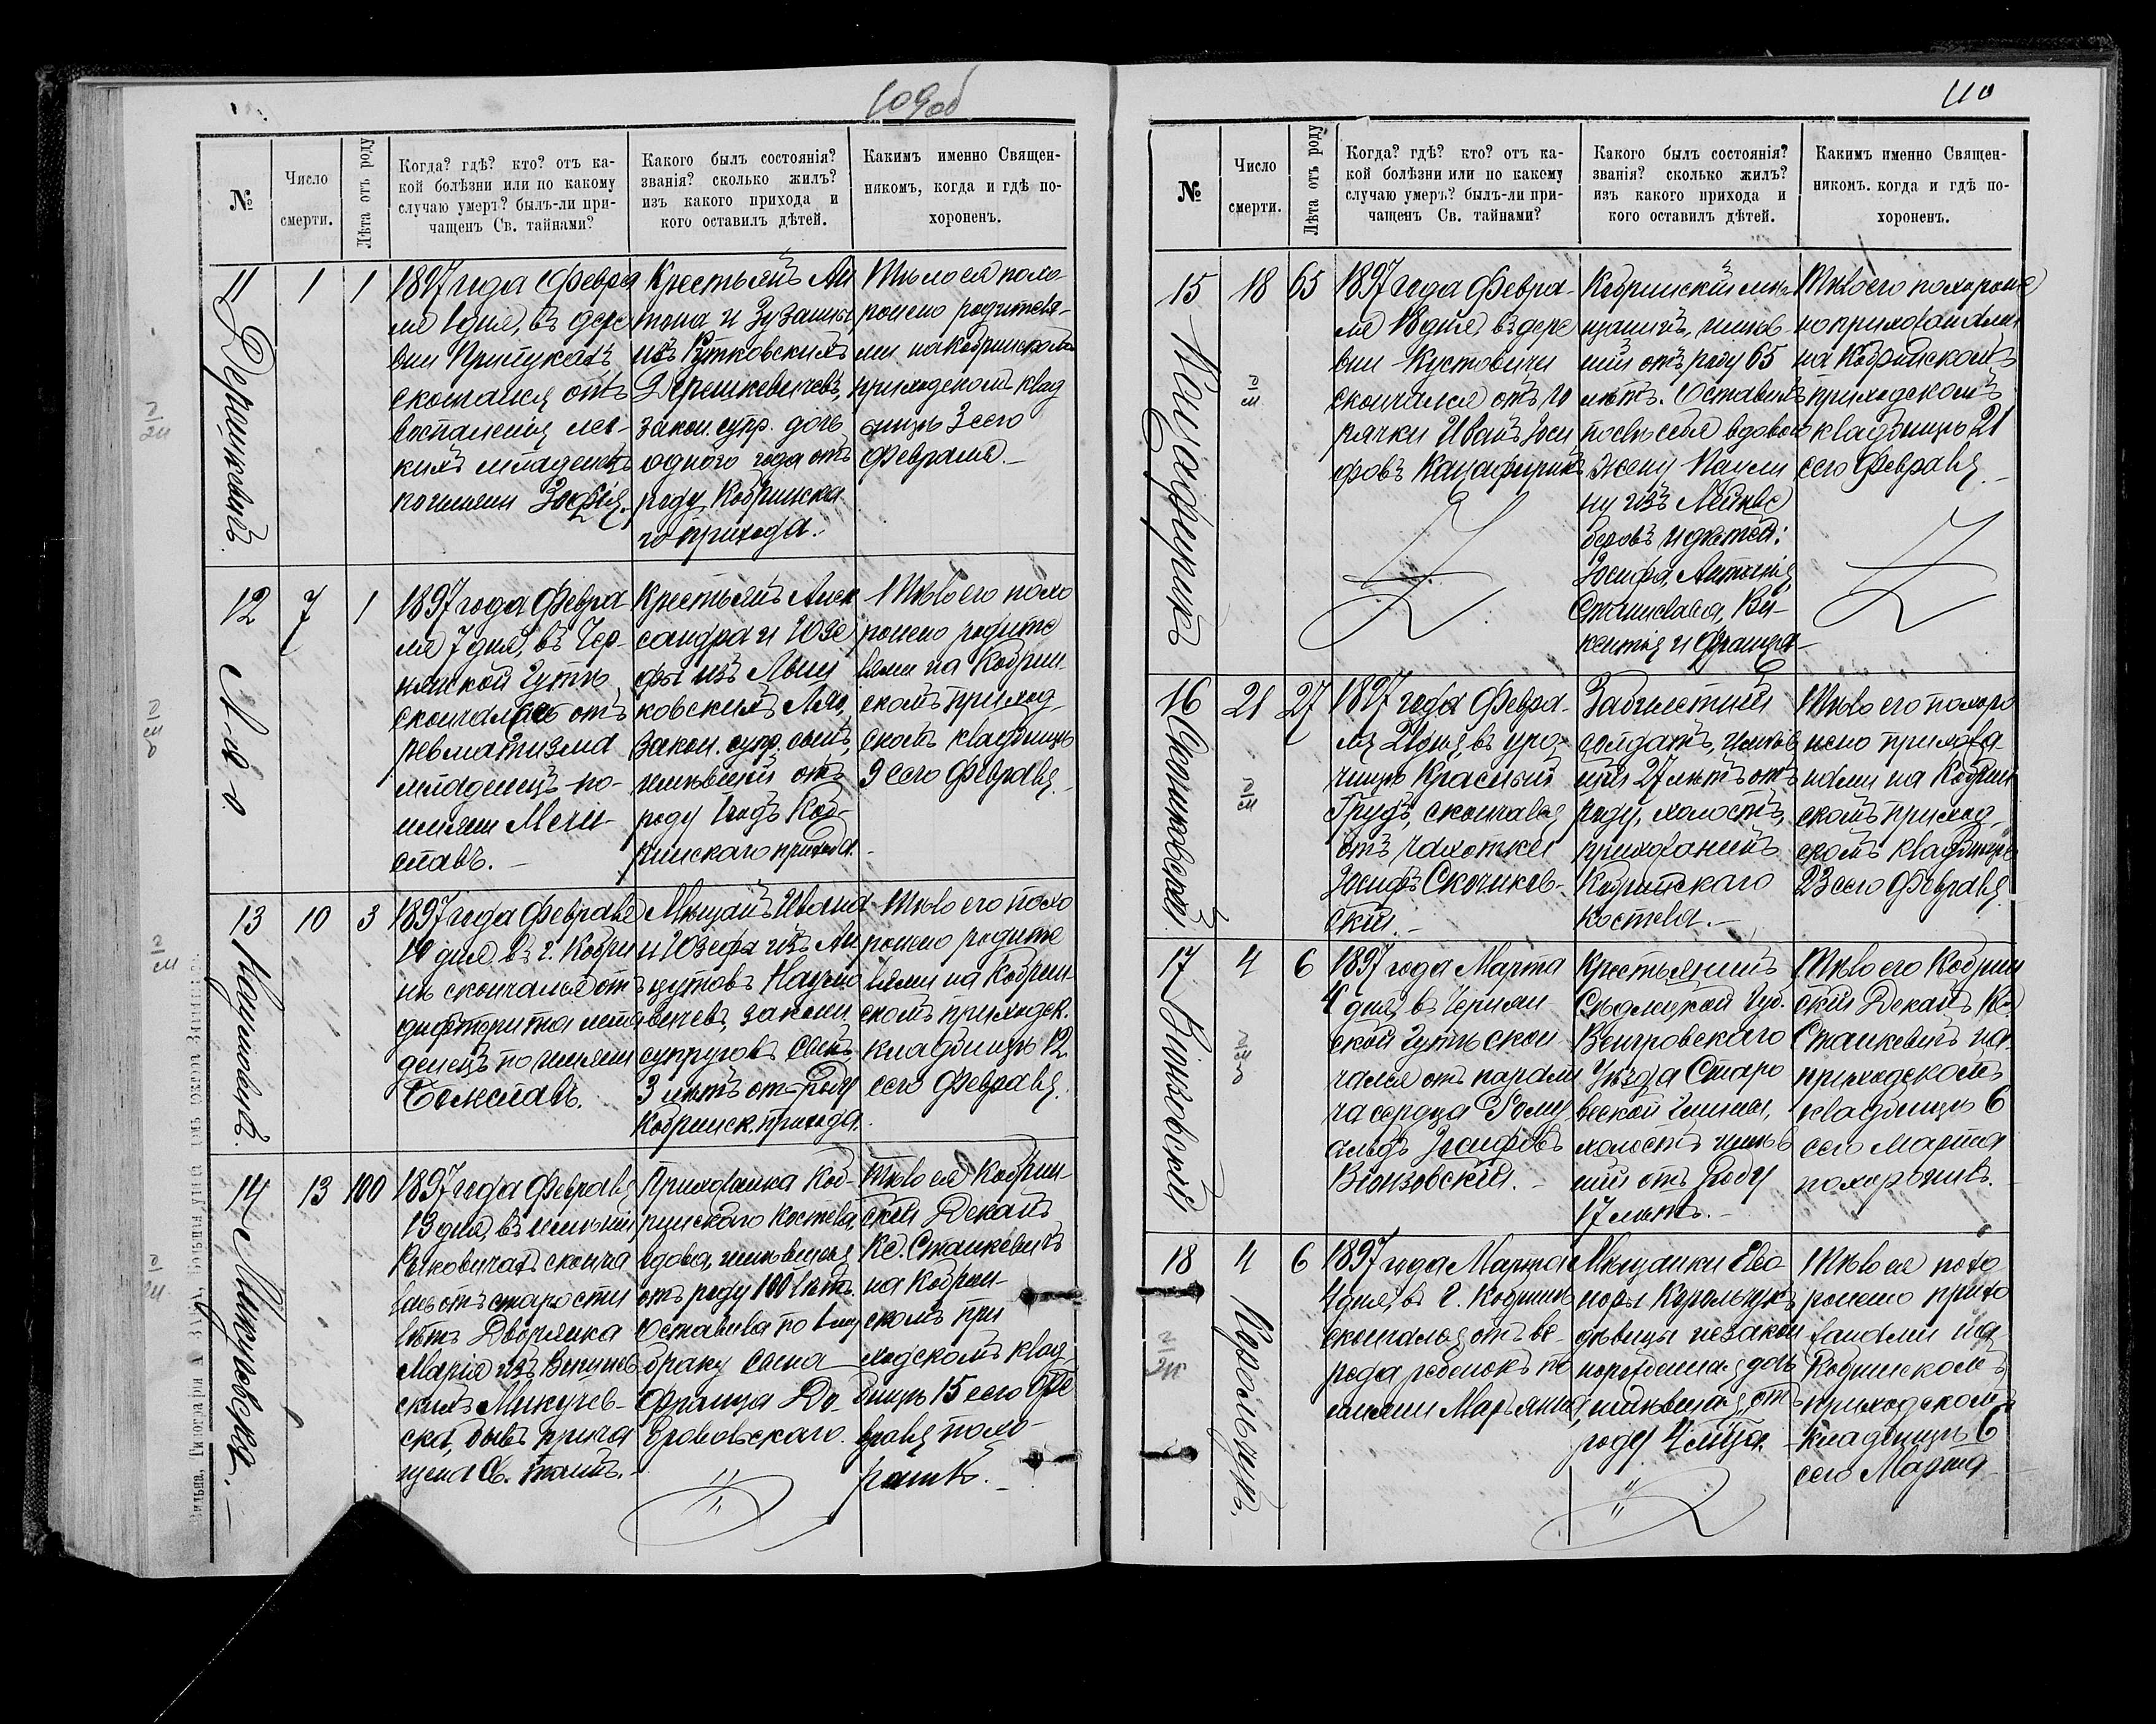 109об
№
Число
смерти.
Лѣта отъ роду
Когда? гдѣ? кто? отъ ка-
кой болѣзни или по какому
случаю умеръ? былъ-ли при-
чащенъ Св. тайнами?
Какого былъ состоянія?
званія? сколько жилъ?
изъ какого прихода и
кого оставилъ дѣтей.
Какимъ именно Священ-
никомъ, когда и гдѣ по-
хороненъ.
11
1
1
1897 года Февра
ля 1 дня, въ дере
вни Припукахъ
скончался отъ
воспаленія лег-
кихъ младенецъ
по имени Зофія.
Крестьянъ Ан
тона и Зузанны
изъ Рутковскихъ
Дерешкевичевъ,
закон. супр. дочь
одного года отъ
роду, Кобринска
го прихода.
Тѣло ея похо-
ронено родителя-
ми на Кобринскомъ
приходскомъ клад
бищѣ 3 сего
Февраля.
12
Ляо.
7
1
1897 года Февра
ля 7 дня, въ Чер-
нянской Гутѣ
скончался отъ
ревматизма
младенецъ по-
имени Мечи-
славъ.
Крестьянъ Алек
сандра и Юзе
фы изъ
ковскихъ Ляо,
закон. супр. сынъ,
имѣвшій отъ
роду 1 годъ Коб-
ринскаго прихода.
Тѣло его похо
ронено родите
лями на Кобрин-
скомъ приход-
скомъ кладбищѣ
9 сего Февраля.
13
Наумовичъ.
10
3
1897 года Февраля
10 дня, въ г. Кобри
нѣ скончался отъ
дифтерита мла
денецъ по имени
Болеславъ.
Мѣщанъ Ивана
и Юзефы изъ Ан
цутовъ Наумо
вичевъ, законн.
супруговъ сынъ
3 лѣтъ отъ роду
Кобринск. прихода.
Тѣло его похо
ронено родите
лями на Кобрин-
скомъ приходск.
кладбищѣ 12
сего Февраля.
14
Микучевска.
13
100
1897 года Февраля
13 дня, въ имѣніи
Рыковичахъ сконча
лась отъ старости
лѣтъ Дворянка
Марія изъ
скихъ Микучев-
ска, бывъ прича
щена Св. таинъ.
Прихожанка Коб-
ринскаго костела,
вдова, имѣвшая
отъ роду 100 лѣтъ.
Оставила по 1-му
браку сына
Франца До-
бровольскаго.
Тѣло ея Кобрин-
скій Деканъ
Кс. Станкевичъ
на Кобрин-
скомъ при
ходскомъ клад-
бищѣ 15 сего Фе
враля похо-
ронилъ.
110
№
Число
смерти.
Лѣта отъ роду
Когда? гдѣ? кто? отъ ка-
кой болѣзни или по какому
случаю умеръ? былъ-ли при-
чащенъ Св. тайнами?
Какого былъ состоянія?
званія? сколько жилъ?
изъ какого прихода и
кого оставилъ дѣтей.
Какимъ именно Священ-
никомъ. когда и гдѣ по-
хороненъ.
15
18
65
1897 года Февра-
ля 18 дня, въ дере
вни Кустовичи
скончался отъ го
рячки Иванъ Іоси
фовъ
Кобринскій мѣ
щанинъ, имѣв
шій отъ роду 65
лѣтъ. Оставилъ
послѣ себя вдовою
жену Паули
ну изъ
и дѣтей:
Іосифа, Антонія,
Станислава, Ви-
кентія и Франца
Тѣло его похороне
но прихожанами
на Кобринскомъ
приходскомъ
кладбищѣ 21
сего Февраля.
16
Скочиковскій.
21
27
1897 года Февра-
ля 21 дня, въ уро-
чищѣ Красный
Грудъ, скончался
отъ чахотки
Іосифъ Скочиков-
скій.
Забилетный
солдатъ, имѣв
шій 27 лѣтъ отъ
роду, холостъ,
прихожанинъ
Кобринскаго
костела.
Тѣло его похоро
нено прихожа-
нами на Кобрин
скомъ приход-
скомъ кладбищѣ
23 сего Февраля
17
Вюнзовскій
4
6
1897 года Марта
4 дня, въ Чернян
ской Гутѣ скон
чался отъ парали
ча сердца Рому
альдъ Іосифовъ
Вюнзовскій.
Крестьянинъ
Сѣдлецкой Губ.
Венгровскаго
Уѣзда Старо
веской Гмины,
холостъ имѣв
шій отъ роду
17 лѣтъ.
Тѣло его Кобрин
скій Деканъ Кс.
Станкевичъ на
приходскомъ
кладбищѣ 6
сего Марта
похоронилъ.
18
Корольчукъ.
4
6
1897 года Марта
4 дня, въ г. Кобринѣ
скончалась отъ
ребенокъ по
имени Марьянна
Мѣщанки Елео
норы Корольчукъ
дѣвицы незакон
норожденная дочь
имѣвшая отъ
роду 4 мѣс.
Тѣло ея похо
ронено прихо
жанами на
Кобринскомъ
приходскомъ
кладбищѣ 6
сего Марта